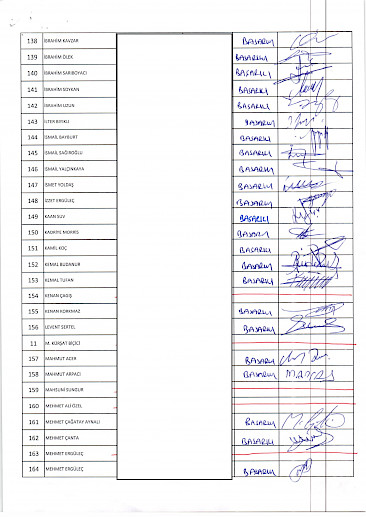 138 İBRAHİM KAVZAR BAŞARILI
139 İBRAHİM ÖLEK BAŞARILI
140 İBRAHİM SARIBOYACI BAŞARILI
141 İBRAHİM SOYKAN BAŞARILI
142 İBRAHİM UZUN BAŞARILI
143 BAŞARILI
144 İSMAİL BAYBURT BAŞARILI
145 İSMAİL SAĞIROĞLU BAŞARILI
146 İSMAİL YALÇINKAYA BAŞARILI
147 İSMET YOLDAŞ BAŞARILI
148 İZZET ERGÜLEÇ BAŞARILI
149 KAAN SUV BAŞARILI
150 KADRİYE MORRİS BAŞARILI
151 KAMİL KOÇ BAŞARILI
152 KEMAL BUDANUR BAŞARILI
153 KEMAL TUFAN BAŞARILI
154 KENAN ÇAĞIŞ
155 KENAN KORKMAZ BAŞARILI
156 LEVENT SERTEL BAŞARILI
11 M. KÜRŞAT BİÇİCİ
157 MAHMUT ACER BAŞARILI
158 MAHMUT ARPACI BAŞARILI
159 MAHSUNİ SUNGUR
160 MEHMET ALİ ÖZEL
161 MEHMET ÇAĞATAY AYNALI BAŞARILI
162 MEHMET ÇANTA BAŞARILI
163 MEHMET ERGÜLEÇ
164 MEHMET ERGÜLEÇ BAŞARILI